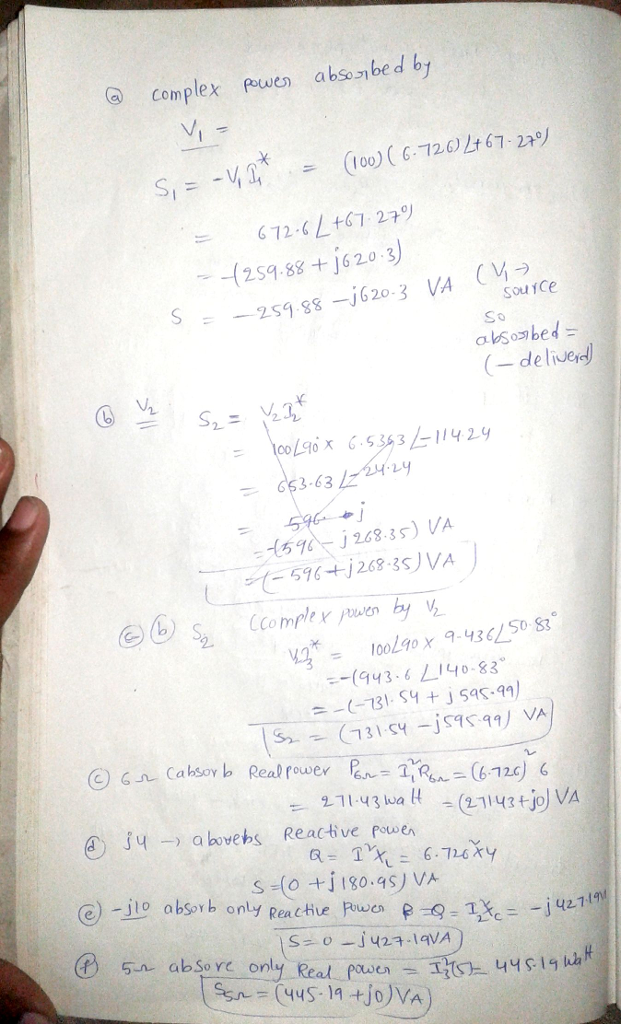 ⓐ complex power absorbed by
V₁ =
S₁ = -V₁ I₁* = (100)(6.726)∠+67.27°)
= 672.6∠+67.27°)
= -(259.88 + j620.3)
S = -259.88 - j620.3 VA (V₁→ source
so
absorbed =
(- deliverd)
ⓑ V₂ S₂ = V₂I₂*
= 100∠90° x 6.5363∠-114.24
= 653.63∠-24.24
= 596 j
= -(596 - j268.35) VA
= (-596 + j268.35) VA
ⓒ ⓑ S₂ (complex power by V₂
V₂I₃* = 100∠90 x 9.436∠50.83°
= -(943.6∠140.83°
= -(-731.54 + j595.99)
S₂ = (731.54 - j595.99) VA
ⓒ 6Ω (absorb Realpower P₆Ω = I₁²R₆Ω = (6.726)² 6
= 271.43 watt = (271.43 + j0) VA
ⓓ j4 → aborebs Reactive power
Q = I²X_L = 6.726² x 4
S = (0 + j180.95) VA
ⓔ -j10 absorb only Reactive Power = Q = I₂²X_C = -j427.19VA
S = 0 - j427.19VA)
ⓕ 5Ω absore only Real power = I₃²(5) = 445.19 watt
S₅Ω = (445.19 + j0) VA)